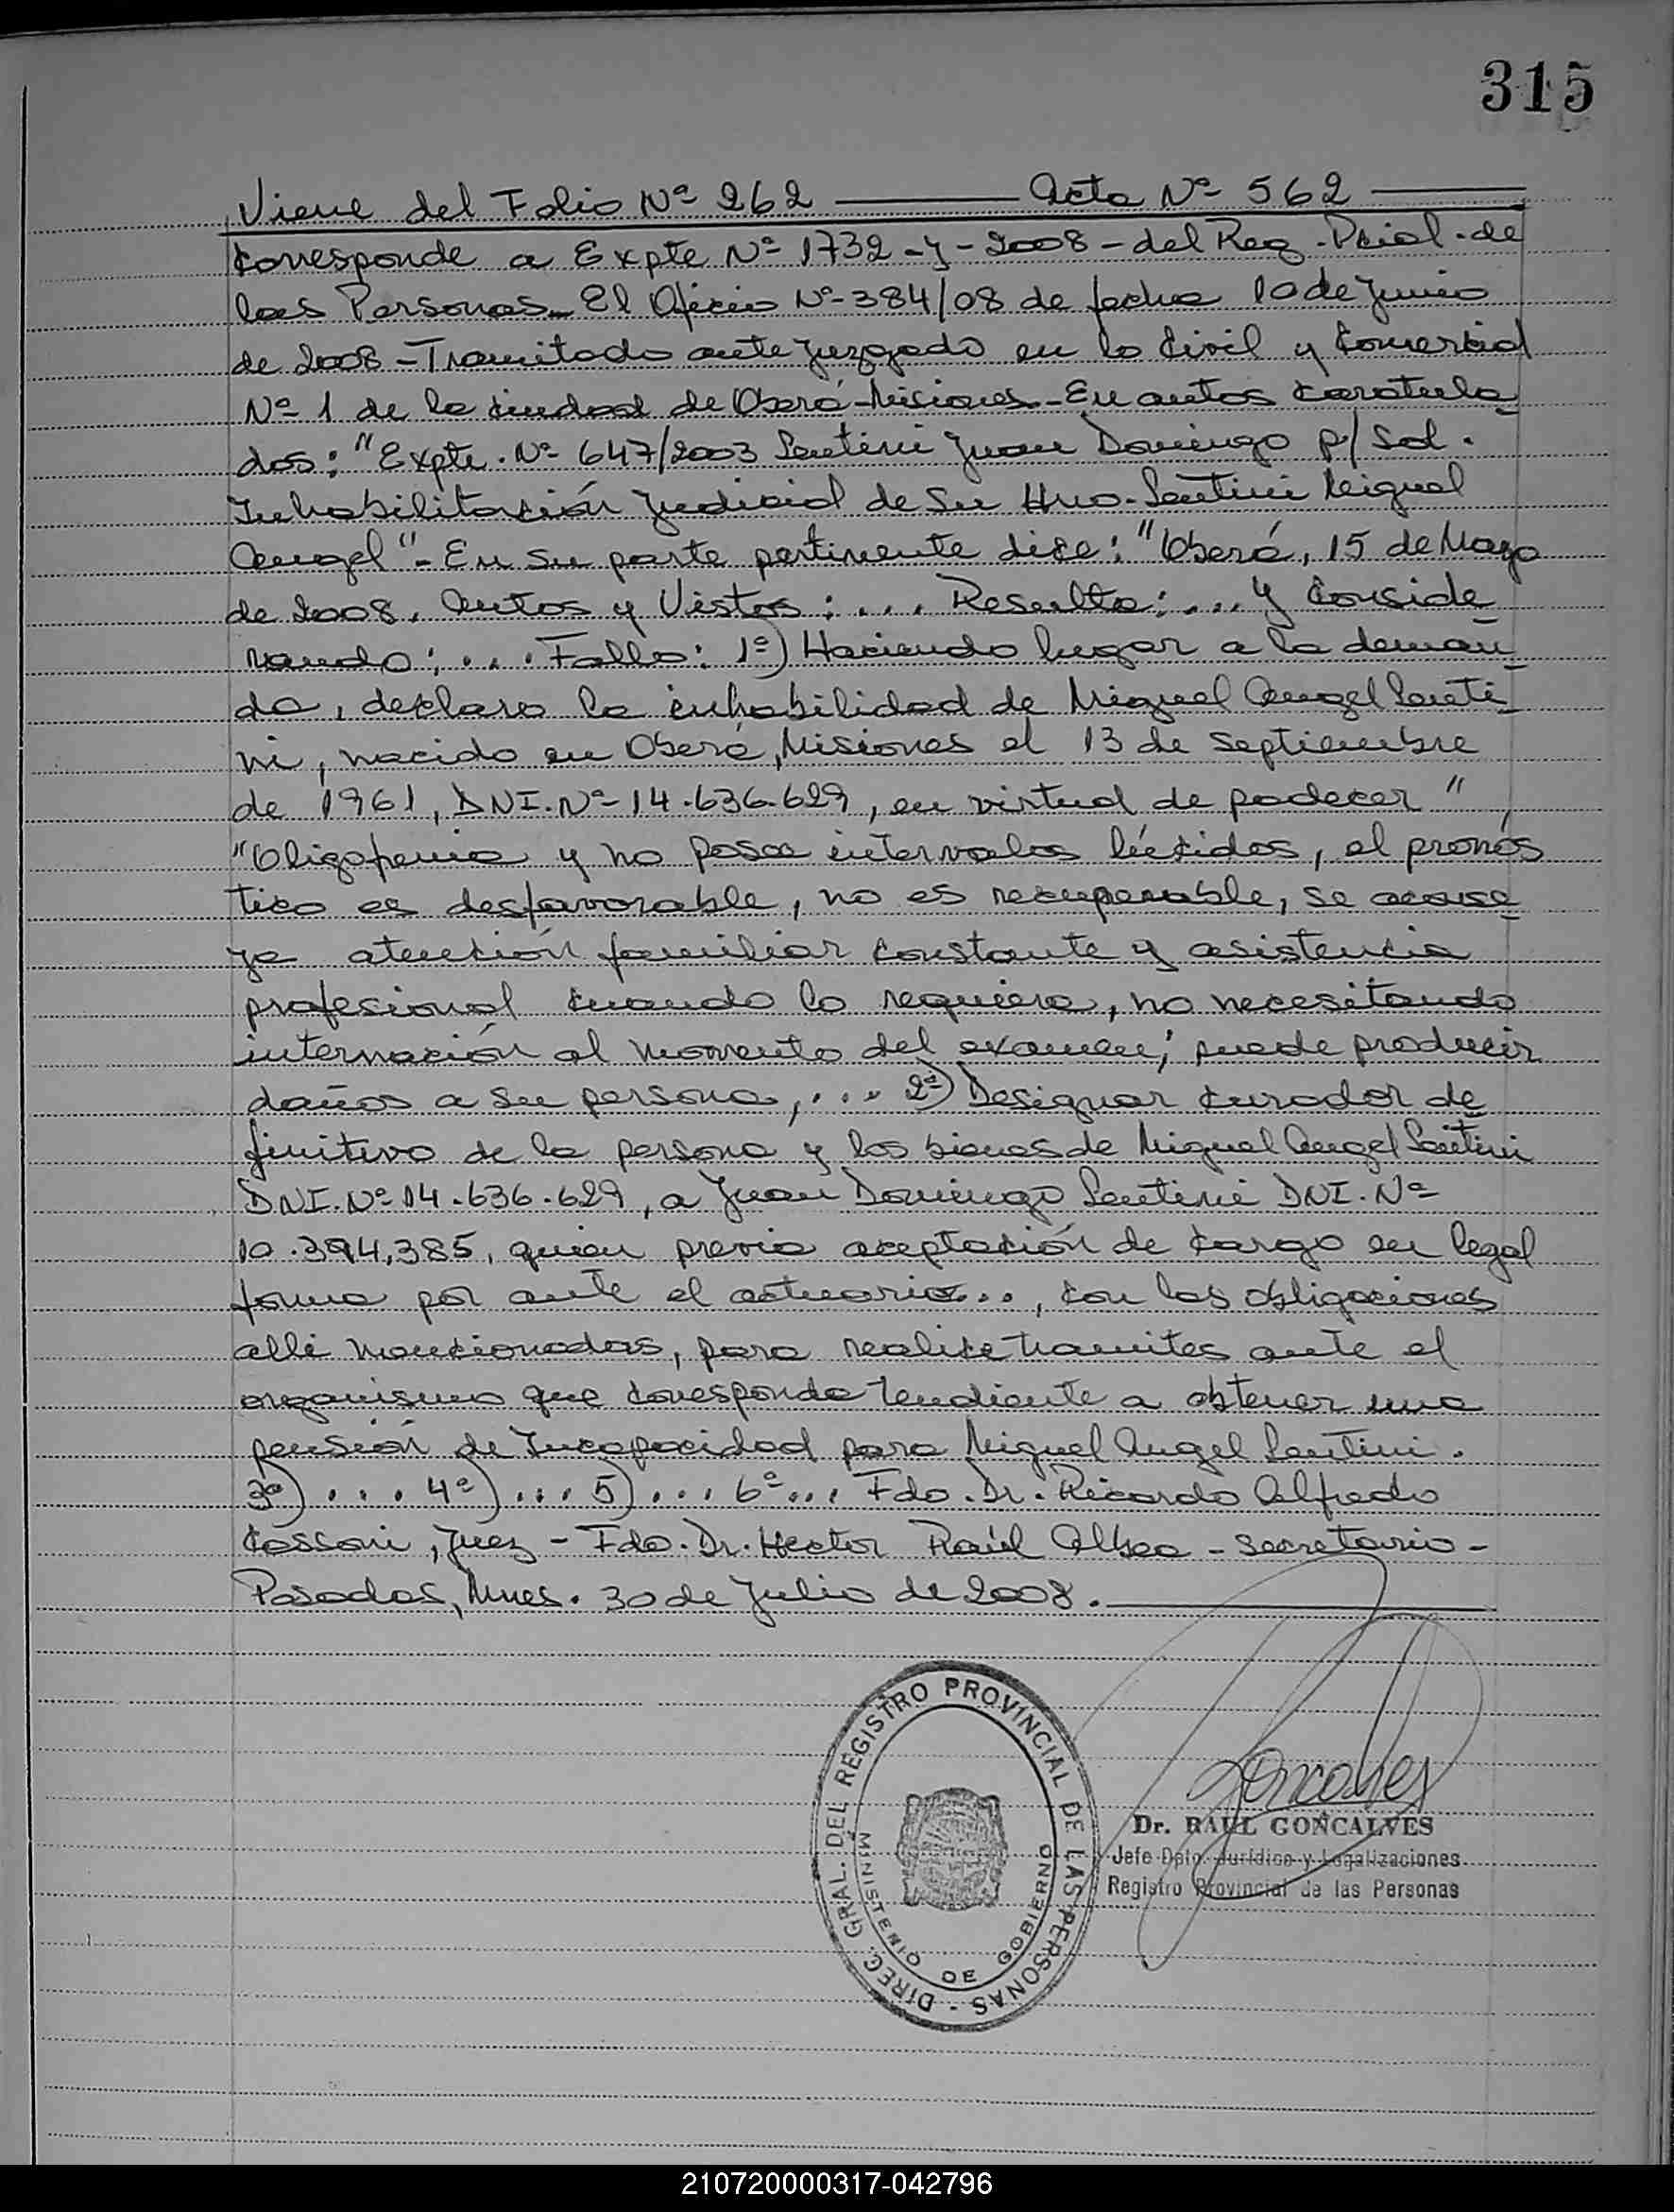 315
Viene del Folio Nº 262 ——— Acta Nº 562 ———
Corresponde a Expte Nº 1732-Y-2008-del Reg. Pcial. de
las Personas- El Oficio Nº 384/08 de fecha 10 de Junio
de 2008 - Tramitado ante Juzgado en lo Civil y Comercial
Nº 1 de la ciudad de Oberá-Misiones-En autos caratula
dos: "Expte. Nº 647/2003 Santini Juan Domingo p/ Sol.
Inhabilitación Judicial de Su Hno-Santini Miguel
Angel"- En su parte pertinente dice: "Oberá, 15 de Mayo
de 2008. Autos y Vistos: ... Resulta: ... y Conside
rando: ... Fallo: 1º) Haciendo lugar a la deman
da, declaro la inhabilidad de Miguel Angel Santi
ni, nacido en Oberá, Misiones el 13 de Septiembre
de 1961, DNI. Nº 14.636.629, en virtud de padecer "
"Oligofrenia y no posee intervalos lúcidos, el pronós
tico es desfavorable, no es recuperable, se aconse
ja atención familiar constante y asistencia
profesional cuando lo requiera, no necesitando
internación al momento del examen; puede producir
daños a su persona, ... 2º) Designar curador de
finitivo de la persona y los bienes de Miguel Angel Santini
DNI. Nº 14.636.629, a Juan Domingo Santini DNI. Nº
10.394,385, quien previa aceptación de cargo en legal
forma por ante el actuario..., con las obligaciones
alli mencionadas, para realice tramites ante el
organismo que corresponda tendiente a obtener una
pensión de Incapacidad para Miguel Angel Santini.
3º) ... 4º) ... 5) ... 6º ... Fdo. Dr. Ricardo Alfredo
Cassoni, Juez - Fdo. Dr. Hector Raúl - Secretario -
Posadas, Mnes. 30 de Julio de 2008. ———
DIREC. GRAL. DEL REGISTRO PROVINCIAL DE LAS PERSONAS -
MINISTERIO DE GOBIERNO
Goncalves
Dr. RAUL GONCALVES
Jefe Dpto. Jurídico y Legalizaciones
Registro Provincial de las Personas
210720000317-042796